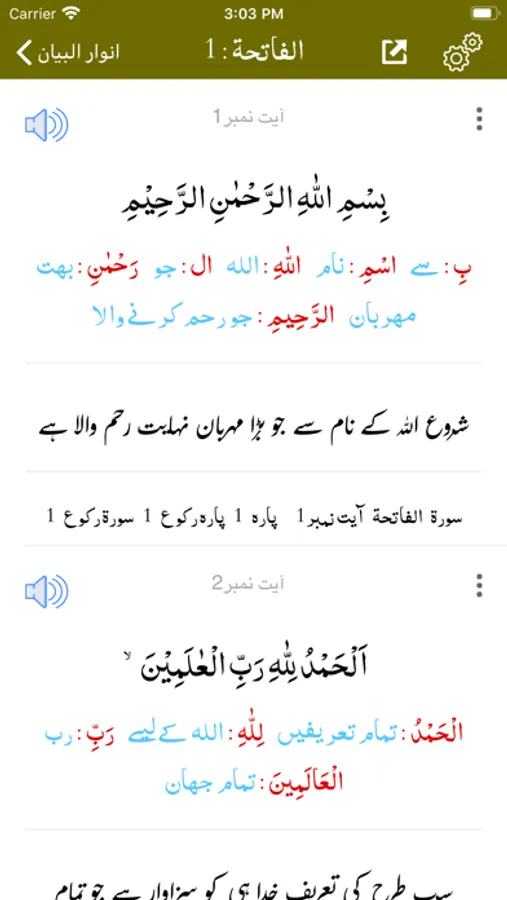 Carrier 3:03 PM
انوار البیان الفاتحة : 1
آیت نمبر1
بِسْمِ اللّٰهِ الرَّحْمٰنِ الرَّحِیْمِ
بِ : سے اسْمِ : نام اللّٰهِ : الله ال : جو رَحْمٰنِ : بهت
مهربان الرَّحِيمِ : جو رحم کرنے والا
شروع اللہ کے نام سے جو بڑا مہربان نہایت رحم والا ہے
سورة الفاتحة آیت نمبر1 پاره 1 پاره رکوع 1 سورة رکوع 1
آیت نمبر2
اَلْحَمْدُ لِلّٰهِ رَبِّ الْعٰلَمِیْنَ ۙ
الْحَمْدُ : تمام تعریفیں لِلّٰهِ : الله کے لیے رَبِّ : رب
الْعَالَمِينَ : تمام جهان
سب طرح کی تعریف خدا ہی کو سزاوار ہے جو تمام